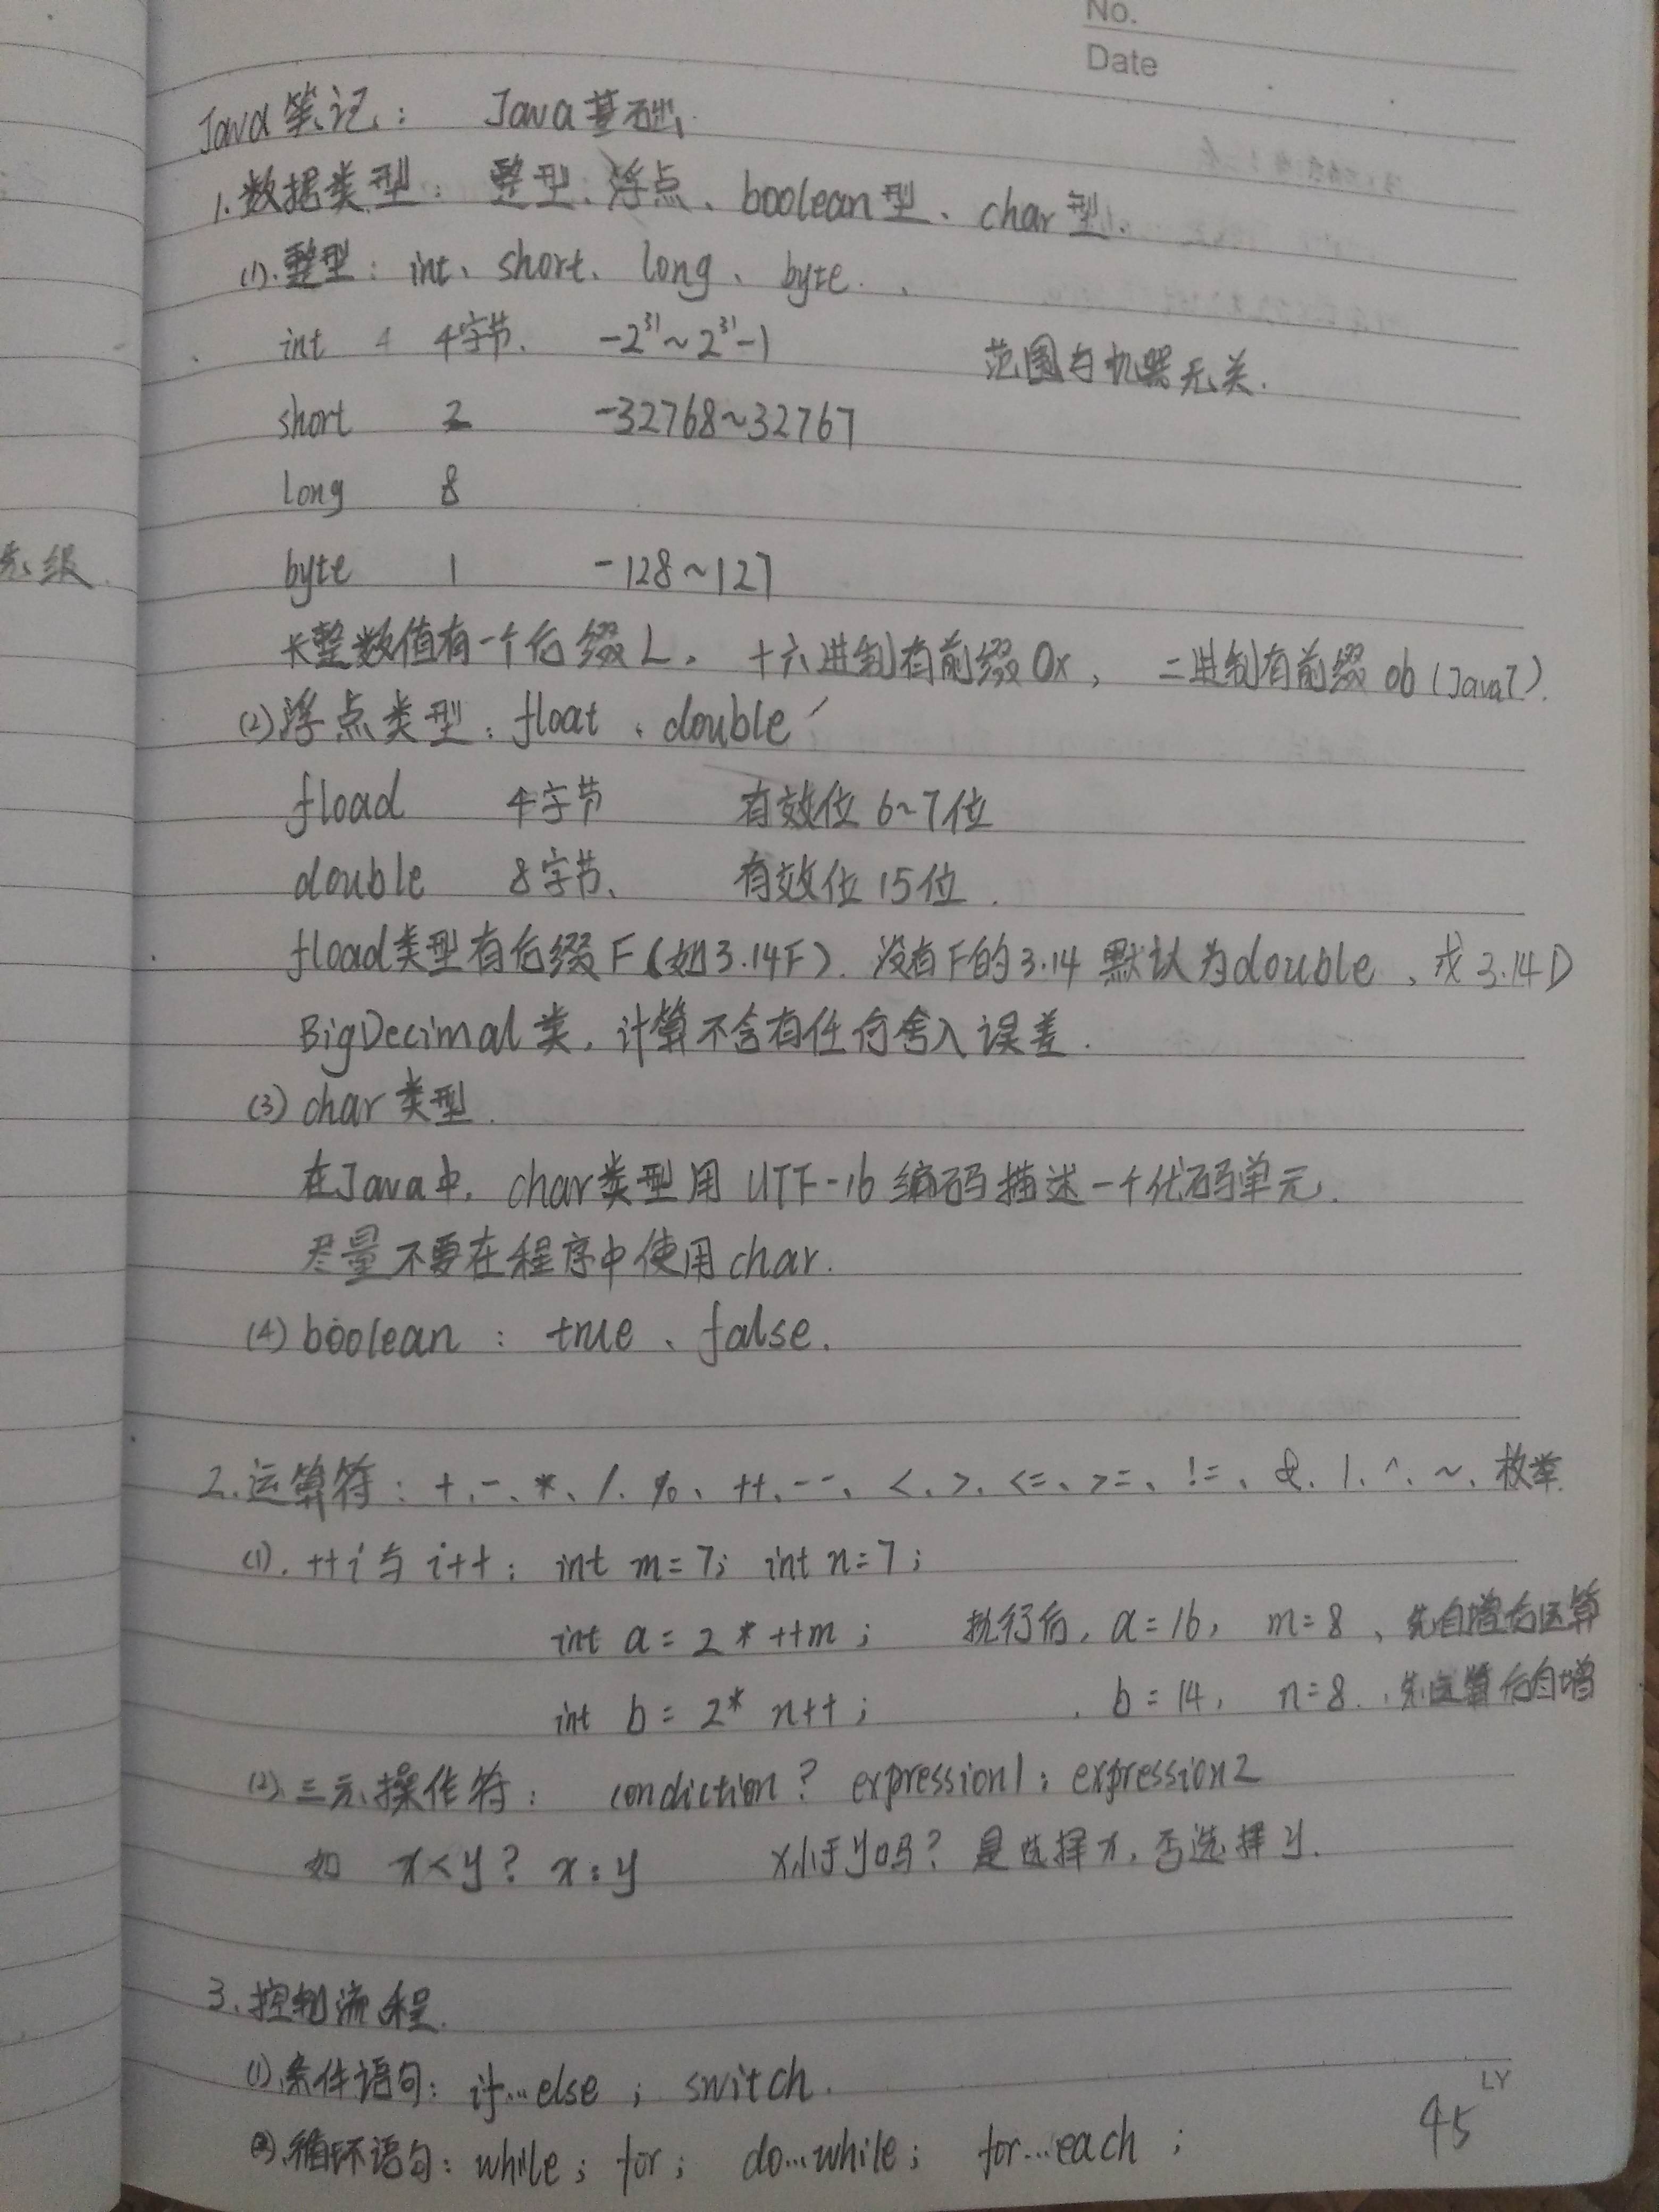 No.
Date
Java笔记： Java基础
1.数据类型： 整型、浮点、boolean型、char型.
(1).整型：int、short、long、byte.
int 4字节. -2³¹~2³¹-1 范围与机器无关.
short 2 -32768~32767
long 8
byte 1 -128~127
长整数值有一个后缀L。十六进制有前缀0x，二进制有前缀0b(Java7).
(2)浮点类型：float、double
fload 4字节 有效位6~7位
double 8字节、 有效位15位.
fload类型有后缀F(如3.14F).没有F的3.14默认为double、或3.14D
BigDecimal类，计算不含有任何舍入误差.
(3)char类型.
在Java中，char类型用UTF-16编码描述一个代码单元.
尽量不要在程序中使用char.
(4)boolean：true、false.
2.运算符：+、-、*、/、%、++、--、<、>、<=、>=、!=、&、|、^、~、枚举.
(1).++i与i++：int m=7; int n=7;
int a=2*++m; 执行后，a=16，m=8、先自增后运算
int b=2* n++; b=14，n=8.、先运算后自增
(2)三元操作符：condiction? expression1:expression2
如 x<y? x:y x小于y吗?是选择x，否选择y.
3.控制流程.
(1)条件语句：if...else；switch.
(2).循环语句：while；for；do...while；for...each；
LY
45